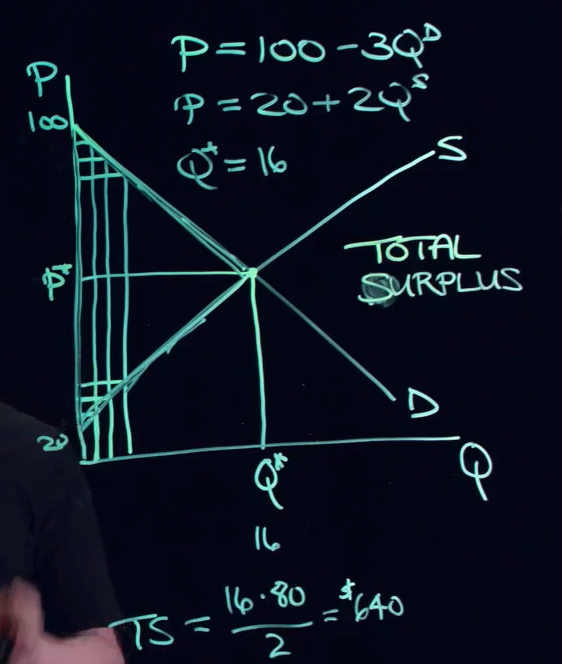 P = 100 - 3Q^D
P = 20 + 2Q^S
Q* = 16
P
100
S
TOTAL
SURPLUS
P*
D
20
Q*
Q
16
TS = 16·80 / 2 = $640